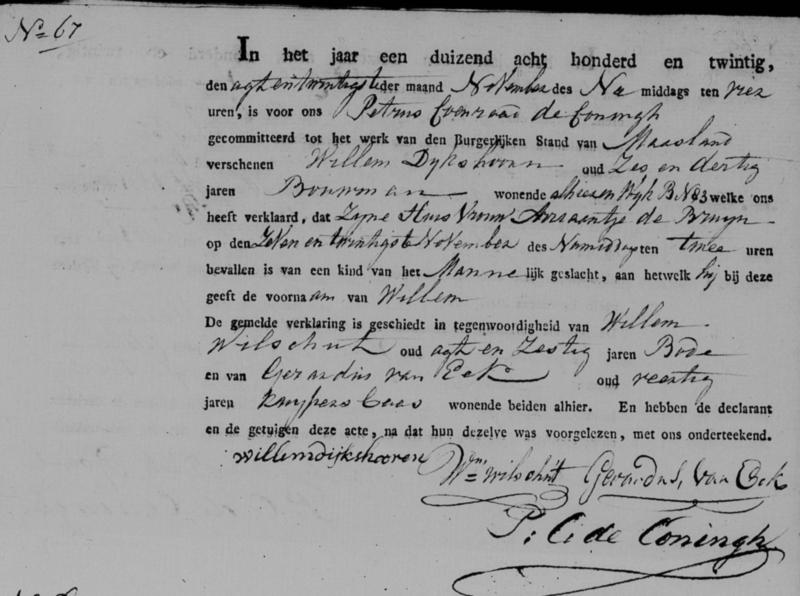 No 67
In het jaar een duizend acht honderd en twintig,
den agt en twintigste der maand November des Na middags ten vier
uren, is voor ons Petrus Coenraad de Coningh
gecommitteerd tot het werk van den Burgerlijken Stand van Maasland
verschenen Willem Dykshoorn oud Zes en dertig
jaren Bouwman wonende alhier en Wyk B N 83 welke ons
heeft verklaard, dat Zyne Huis Vrouw Ariaantje de Bruyn
op den Zeven en twintigste November des Namiddag ten twee uren
bevallen is van een kind van het Manne lijk geslacht, aan hetwelk hij bij deze
geeft de voornaam van Willem
De gemelde verklaring is geschiedt in tegenwoordigheid van Willem
Wilschut oud agt en Zestig jaren Bode
en van Gerardus van Eck oud veertig
jaren Kuypers baas wonende beiden alhier. En hebben de declarant
en de getuigen deze acte, na dat hun dezelve was voorgelezen, met ons onderteekend.
willem dijkshooren
Wm wilschut Gerardus van Eck
P: C: de Coningh